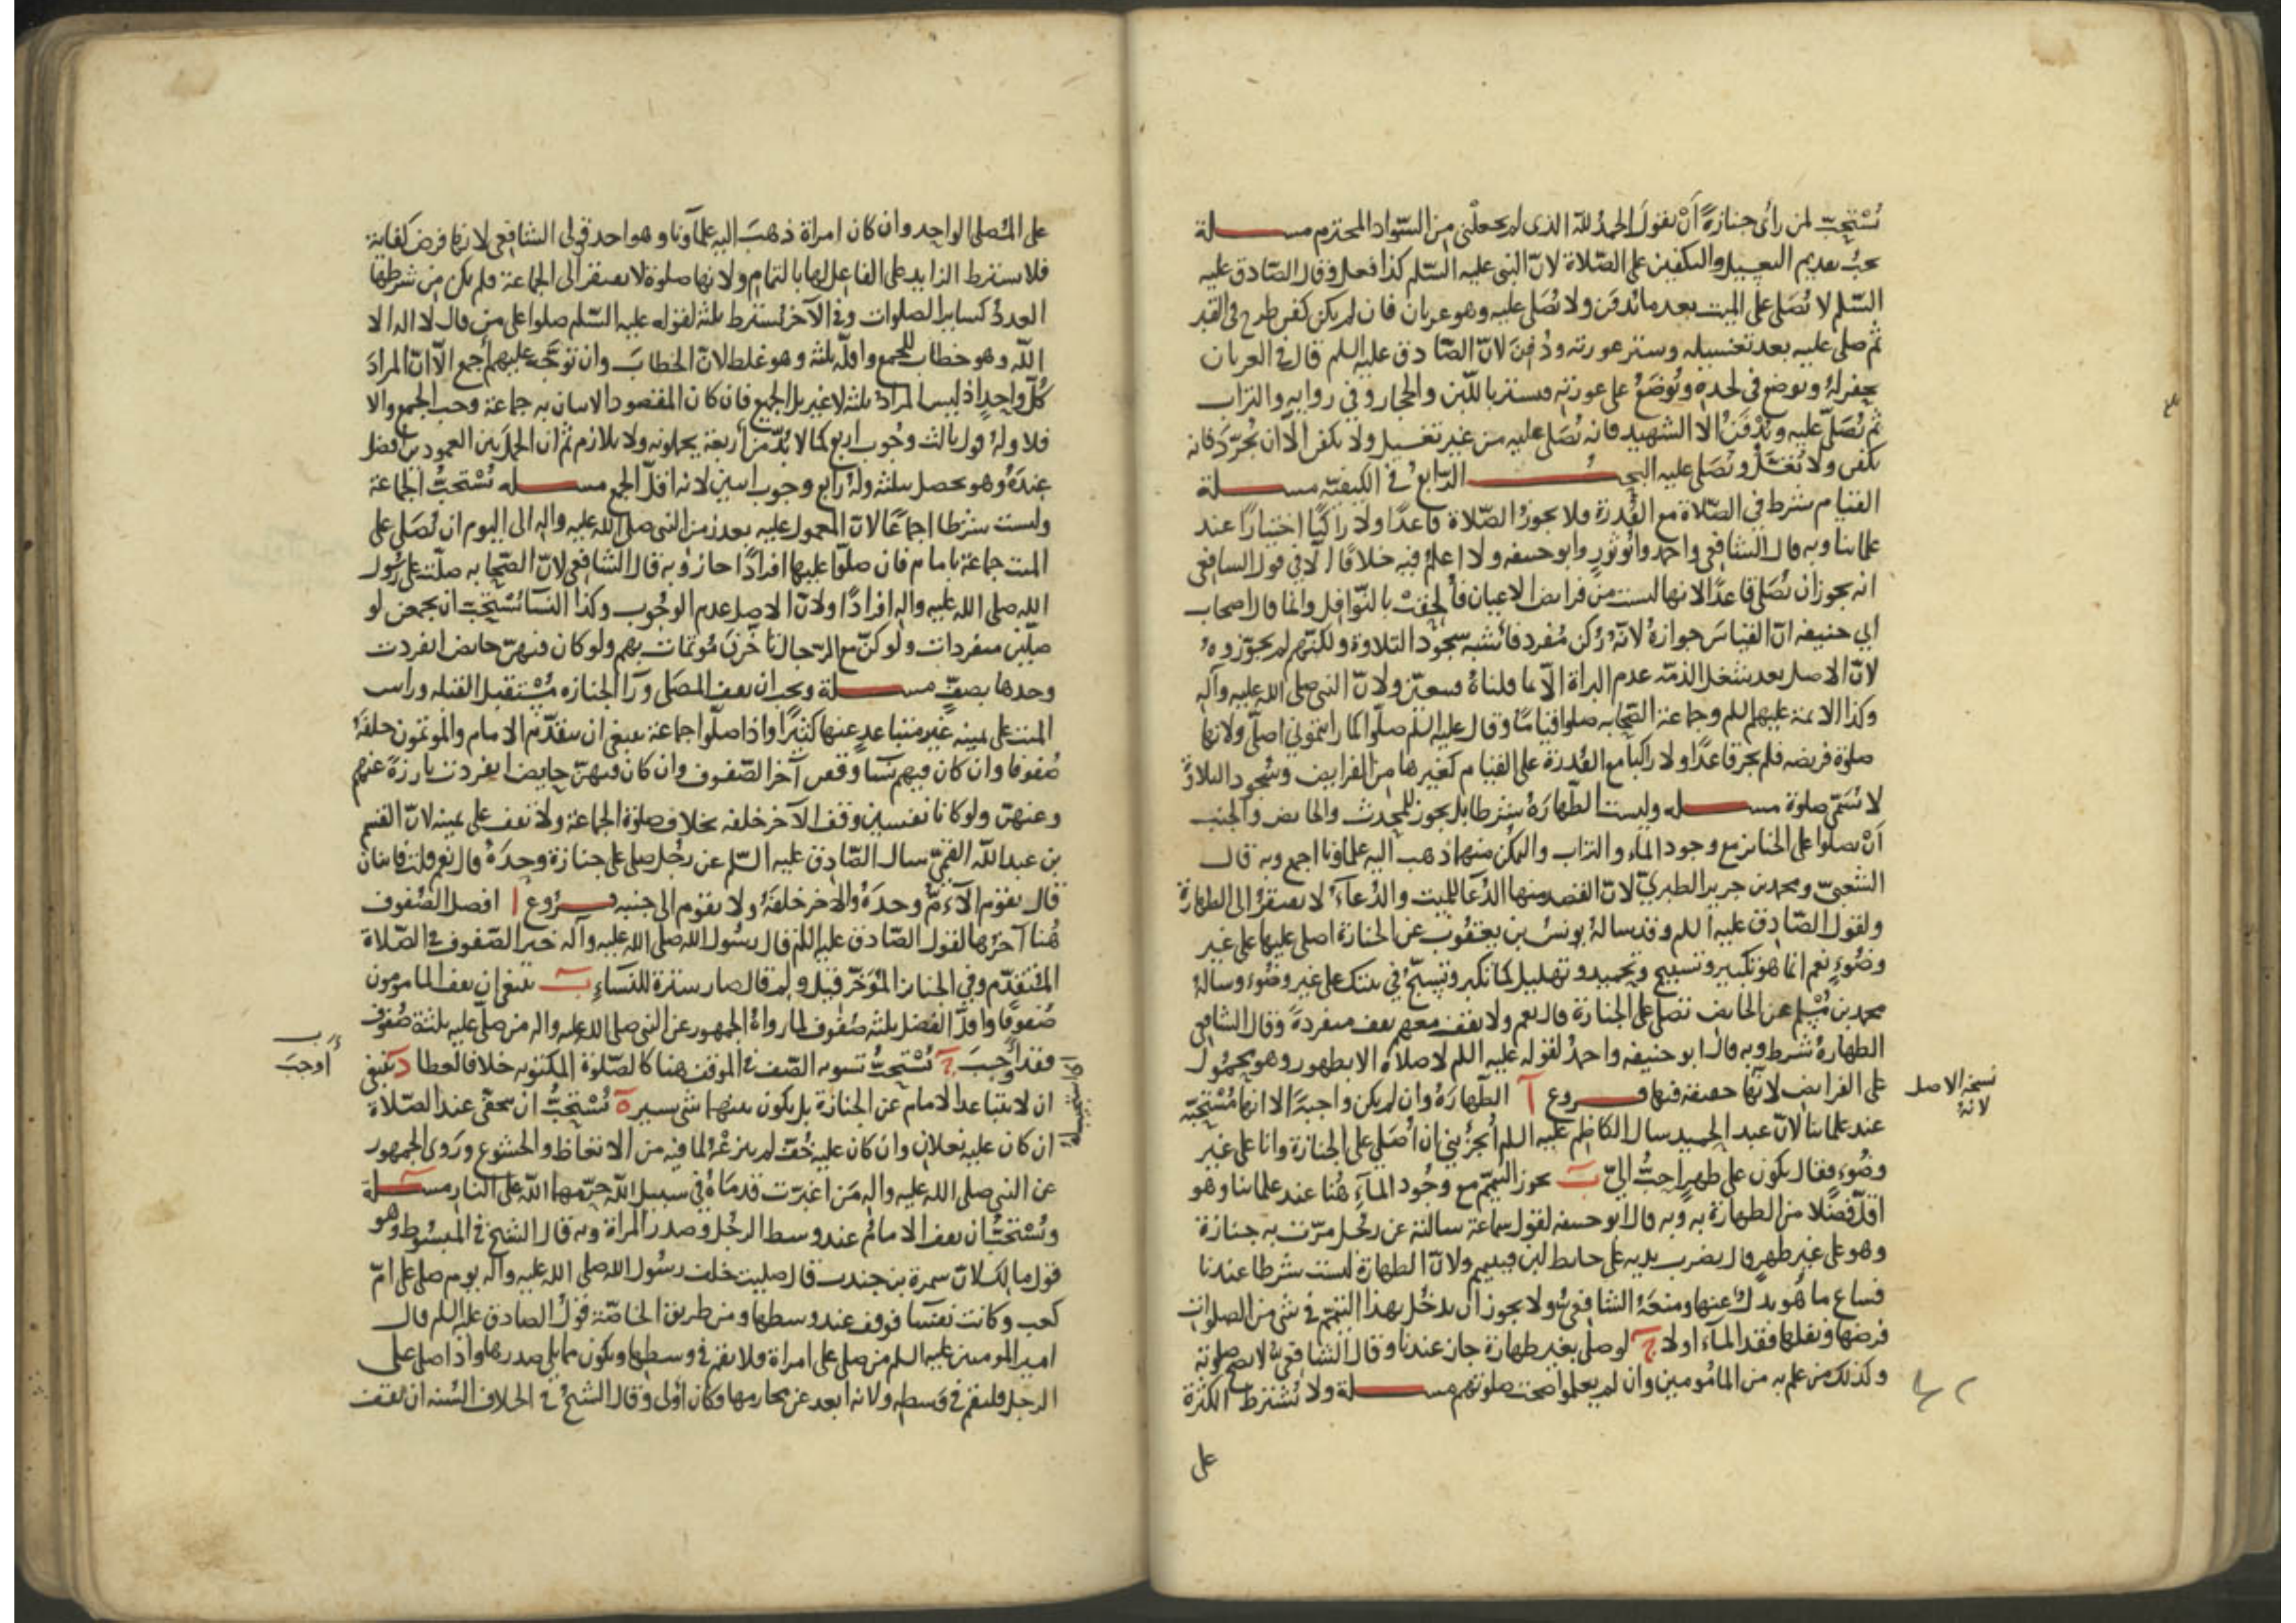 يُسْتَحَبّ لمن رأى جنازةً أنْ يقولَ الحمدُ للّه الذى لم يجعلْنى من السّواد المخترم مسـلة
يجبُ تقديم التغسيل والتكفين على الصّلاة لانّ النبى عليه السّلم كذا فعل وقال الصّادق عليه
السّلم لا تُصَلى على الميت بعد ما يُدفَن ولا يُصَلى عليه وهو عريان فان لم يكن كفن طرح فى القبر
ثم صلى عليه بعد تغسيله وستر عورته ودُفِنَ لانّ الصّادق عليه السلم قال فى العريان
يحفر لهُ ويوضع فى لحدهِ ويُوضَعُ على عورته فيستر باللَّبِن والحجارة وفى رواية والتراب
ثم يُصَلّى عليه ويُدْفَنُ الا الشهيد فانه يُصَلى عليه من غير تغسيل ولا يكفن الّا ان يُجَرّدَ فانه
يكفن ولا يُغَسَّلُ ويُصَلى عليه البحـث الرّابعُ فى الكيفيّة مسـلة
القيام شرط فى الصّلاة مع القُدرة فلا يجوزُ الصّلاة قاعدًا ولا راكبًا اختيارًا عند
علمائنا وبه قال الشافعى واحمد وابُو ثورٍ وابو حنيفه ولا اعلمُ فيه خلافًا الّا فى قول الشافعى
انه يجوز ان يُصَلى قاعدًا لانها ليست من فرايض الاعيان فأُلحِقَتْ بالنّوافل وانما قال اصحاب
أبي حنيفه انّ القياسَ جوازهُ لانّهُ رُكن مُفرد فأشبه سجود التلاوة ولكنّهم لم يجوّزوهُ
لانّ الاصل بعد شغل الذمّة عدم البراة الّا بما قلناهُ فيتعيّن ولانّ النبى صلى الله عليه وآله
وكذا الائمة عليهم السلم وجماعة الصّحابه صلوا قيامًا وقال عليه السّلم صلّوا كما رايتمونى اصلّى ولانها
صلوة فريضه فلم يجز قاعدًا ولا راكبا مع القُدرة على القيام كغيرها من الفرايض وسُجود التلاوة
لا يُسَمّى صلوة مسـله وليست الطّهارَةُ شرطا بل يجوز للمحدث والحايض والجنب
أنْ يصلوا على الجنايز مع وجود الماء والتراب والتمكّن منهما ذهب اليه علماؤنا اجمع وبه قال
الشعبىّ ومحمد بن جرير الطبرىّ لانّ القصد منها الدُّعا للميت والدُّعآءُ لا يفتقرُ الى الطهارة
ولقول الصّادق عليه السلم وقد سالهُ يونسُ بن يعقُوب عن الجنازة اصلى عليها على غير
وضُوءٍ نعم انما هو تكبير وتسبيح وتحميد وتهليل كما تكبر وتسبّحُ فى بيتك على غير وضُوء وسالهُ
محمد بن مُسْلم عن الحايض تصلى على الجنازة قال نعم ولا تقف معهم تقف منفردةً وقال الشافعى
الطهارةُ شرط وبه قال ابو حنيفه واحمدُ لقوله عليه السلم لا صلاة الا بطهور وهو محمُول
على الفرايض لانّها حقيقه فيها فـروع آ الطّهارَةُ وان لم يكن واجبةً الا انها مُسْتَحَبّه
عند علمائنا لانّ عبد الحميد سال الكاظم عليه السلم أيجزُينى ان اُصَلى على الجنازة وانا على غير
وضُوءٍ فقال يكون على طهرٍ احبُّ الىّ ب يجوز التيمّم مع وجُود المآءِ هُنا عند علمائنا وهو
اقلّ فضلًا من الطهارة به وبه قال ابو حنيفه لقول سماعة سالتهُ عن رجُل مرّت به جنازة
وهو على غير طهرٍ قال يضرب يديه على حايط لبن فيتيمم ولانّ الطهارة ليست شرطا عندنا
فساغ ما هُو بدلٌ عنها ومنعَهُ الشافعىُّ ولا يجوز ان يدخُل بهذا التيمّم فى شى من الصلوات
فرضها ونفلها فقد المآء اولا ج لو صلى بغير طهارة جاز عندنا وقال الشافعىُّ لا تصح صلوته
وكذلك من علم به من المأمُومين وان لم يعلموا صحت صلوتهم مسـلة ولا يُشترط الكثرة
على
نسخه الاصل
لانهُ
على المُصلى الواحِد وان كان امراة ذهبَ اليه علمآونا وهو احد قولى الشافعى لانها فرض كفاية
فلا يشترط الزايد على الفاعل لها بالتمام ولانها صلوة لا تفتقر الى الجماعة فلم يكن من شرطها
العددُ كساير الصلوات وفى الآخر يُشترط ثلثة لقوله عليه السّلم صلوا على من قال لا اله الا
اللّه وهو خطاب للجمع واقلّه ثلثة وهو غلط لانّ الخطابَ وان توَجَّهَ عليهم أجمع الّا انّ المرادَ
كُلّ واحِدٍ اذ ليس المرادُ ثلثة لا غير بل الجميع فان كان المقصود الاتيان به جماعة وجب الجمع والا
فلا ولهُ قول ثالث وجُوب اربع كما لا بُدّ من أربعة يحملونه ولا تلازم ثم ان الحملَ بين العمودين افضل
عندَهُ وهو يحصل بثلثة ولهُ رابع وجوب اثنين لانه اقلّ الجمع مسـله تُسْتحبُّ الجماعة
وليست شرطا اجماعًا لانّ المعمول عليه بعد زمن النبى صلى الله عليه واله الى اليوم ان يُصَلى على
الميت جماعة بامام فان صلوا عليها افرادًا جاز وبه قال الشافعى لانّ الصّحابه صلّت على رسُول
الله صلى الله عليه واله افرادًا ولانّ الاصل عدم الوجُوب وكذا النسآ يُسْتَحَبّ ان يجمعن لو
صلّين منفردات ولو كنّ مع الرّجال تأخّرنَ مُوتمات بهم ولو كان فيهنّ حايض انفردت
وحدها بصفٍّ مسـلة ويجب ان يقف المصَلى ورآ الجنازه مُسْتقبل القبله وراس
الميت على يمينه غير متباعدٍ عنها كثيرًا واذا صلّوا جماعة ينبغى ان يتقدّم الامام والمُوتمون خلفهُ
صُفوفا وان كان فيهم نسآ وقفن آخر الصّفوف وان كان فيهنّ حايض انفردت بارزةً عنهم
وعنهن ولو كانا نفسين وقف الآخر خلفه بخلاف صلوة الجماعة ولا يقف على يمينه لانّ القسم
بن عبد اللّه القمىّ سال الصّادق عليه السّلم عن رجُل صلى على جنازة وحدَهُ قال نعم قلت فاثنان
قال يقوم الامام وحدَهُ والآخر خلفَهُ ولا يقوم الى جنبه فـرُوع ا افضل الصّفوف
هُنا آخرُها لقول الصّادق عليه السلم قال رسُول الله صلى الله عليه وآله خير الصّفوف فى الصّلاة
المُتقدّم وفى الجنايز المُؤخّر قيل ولم قال صار سترة للنساءِ ب ينبغى ان يقف المامومون
صُفوفًا واقلّ الفضل ثلثة صُفوف لما رواهُ الجمهور عن النبى صلى الله عليه واله من صلّى عليه ثلثة صُفوف
فقد أوجبَ ج يُسْتحبُّ تسويه الصّف فى الموقف هنا كالصّلوة المكتوبه خلافا لعطا د ينبغى
ان لا يتباعد الامام عن الجنازة بل يكون بينهما شى يسير ه يُسْتحبُّ ان يتحفى عند الصّلاة
ان كان عليه نعلان وان كان عليه خُفّ لم ينزعْهُ لما فيه من الاتعاظ والخشوع ورَوى الجمهور
عن النبى صلى الله عليه واله مَن اغبرّت قدماهُ فى سبيل اللّه حرّمهما اللّه على النار مسـلة
ويُسْتحبُّ ان يقف الامامُ عند وسط الرجُل وصدر المراة وبه قال الشيخ فى المبسُوط وهو
قول مالك لانّ سمرة بن جندب قال صليت خلف رسُول الله صلى الله عليه وآله يوم صلى على امّ
كعب وكانت نفسآ فوقف عند وسطها ومن طريق الخاصّة قولُ الصادق عليه السلم قال
امير المومنين عليه السلم من صلى على امراة فلا يقم فى وسطها ويكون مما يلى صدرها واذا صلى على
الرجل فليقم فى وَسطه ولانهُ ابعد عن محارمها فكان أولى وقال الشيخُ فى الخلاف السُنه ان يقف
أوجبَ